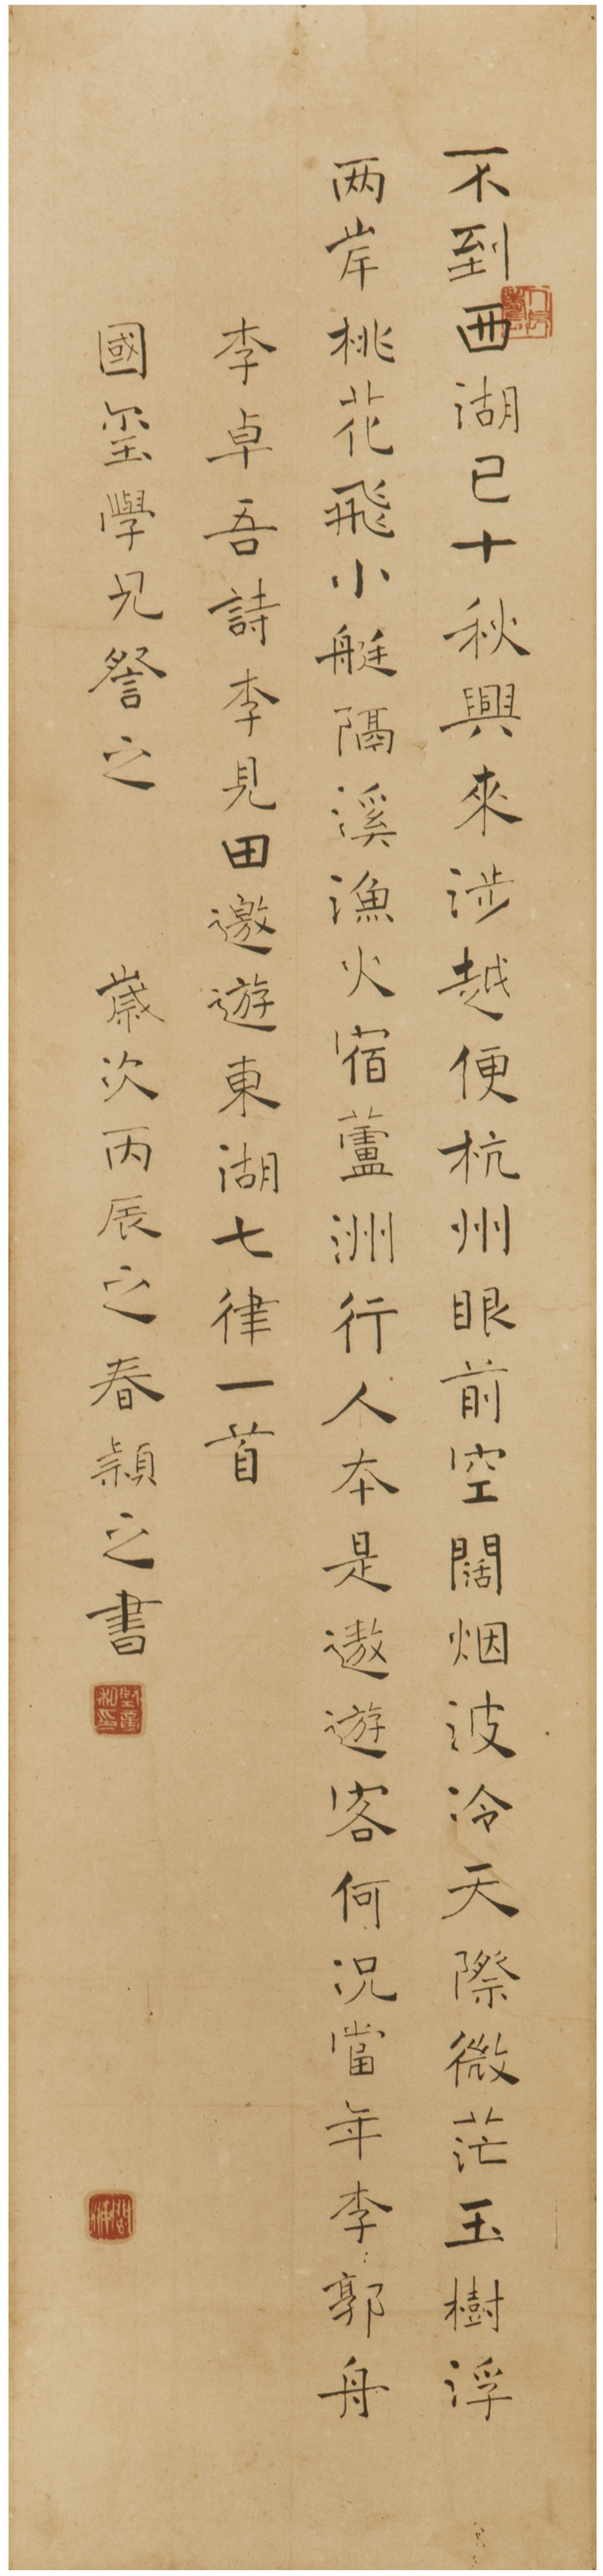 不到西湖已十秋興來涉越便杭州眼前空闊烟波冷天際微茫玉樹浮
两岸桃花飛小艇隔溪漁火宿蘆洲行人本是遨遊客何況當年李郭舟
李卓吾詩李見田邀遊東湖七律一首
國璽學兄詧之 歲次丙辰之春穎之書